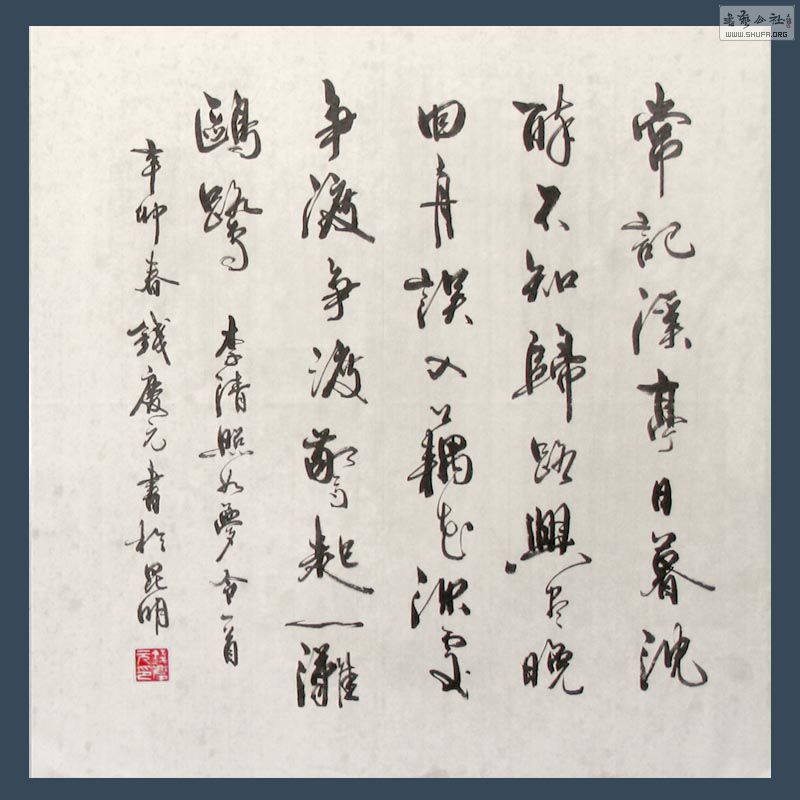 常記溪亭日暮沈
醉不知歸路興尽晚
回舟誤入藕花深處
争渡争渡驚起一灘
鷗鷺 李清照如夢令一首
辛卯春錢慶元書於昆明
書藝公社
WWW.SHUFA.ORG